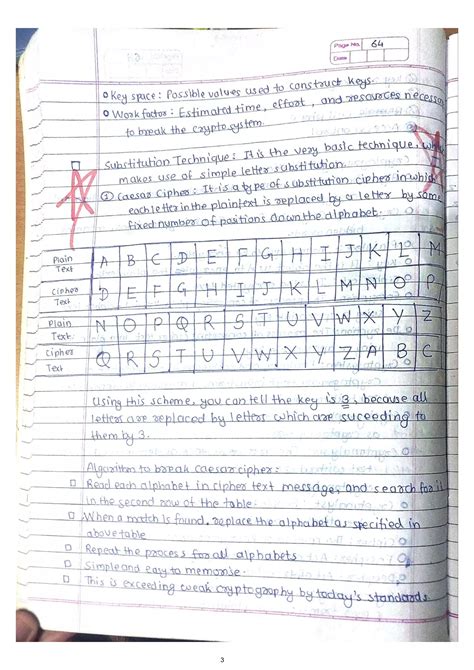 Page No. 64
Date
Key space: Possible values used to construct keys.
Work factor: Estimated time, effort, and resources necess
to break the cryptosystem.
Substitution Technique: It is the very basic technique, wh
makes use of simple letter substitution.
Caesar Cipher: It is a type of substitution cipher in which
each letter in the plaintext is replaced by a letter by some
fixed number of positions down the alphabet.
Plain Text A B C D E F G H I J K L M
Cipher Text D E F G H I J K L M N O P
Plain Text N O P Q R S T U V W X Y Z
Cipher Text Q R S T U V W X Y Z A B C
Using this scheme, you can tell the key is 3, because all
letters are replaced by letters which are suceeding to
them by 3.
Algorithm to break caesar cipher:
Read each alphabet in cipher text message, and search for it
in the second row of the table.
When a match is found, replace the alphabet as specified in
above table
Repeat the process for all alphabets
Simple and easy to memorise.
This is exceeding tweak cryptography by today's standards
3